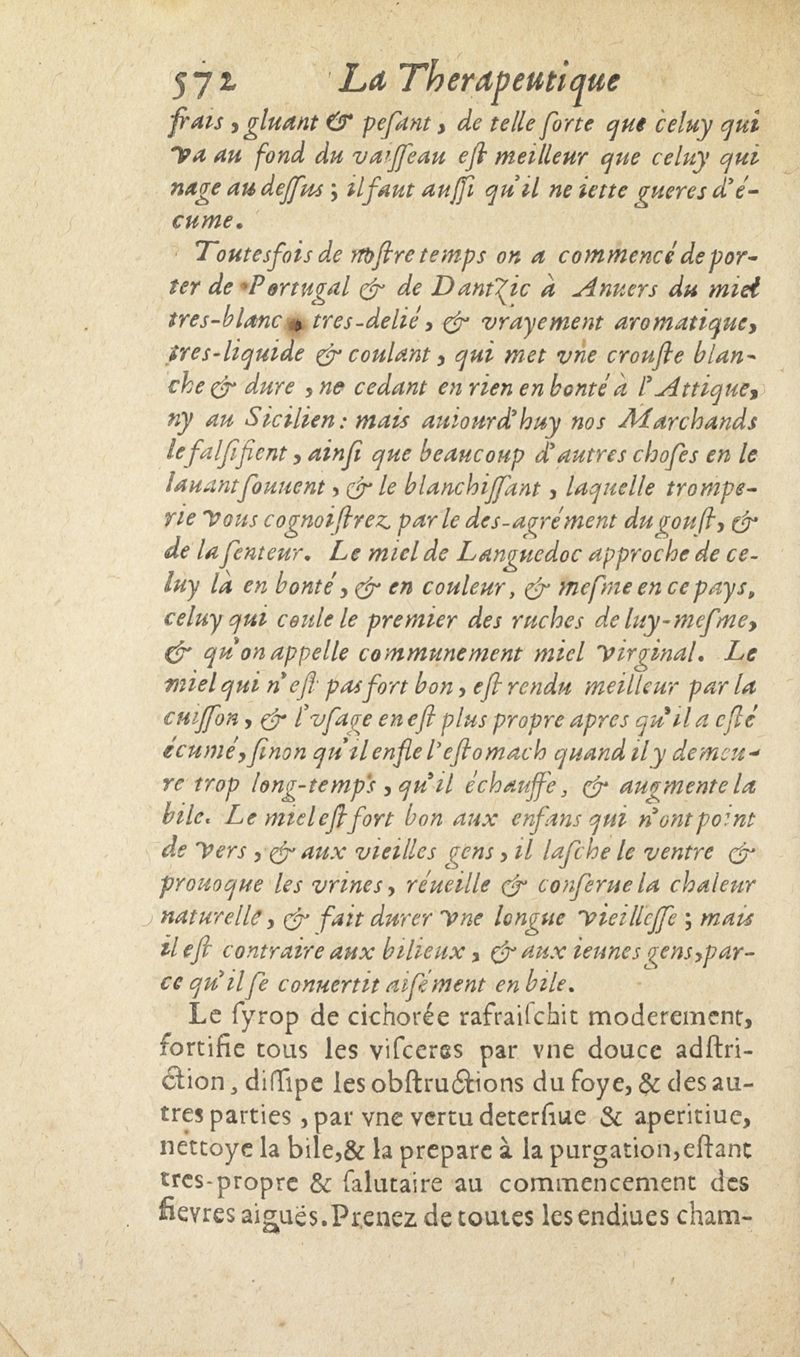 572 La Therapeutique
frais, gluant & pesant, de telle sorte que celuy qui
va au fond du vaisseau est meilleur que celuy qui
nage au dessus; il faut aussi qu'il ne iette gueres d'é-
cume.
Toutesfois de nostre temps on a commencé de por-
ter de Portugal & de Dantzic à Anuers du miel
tres-blanc, tres-delié, & vrayement aromatique,
tres-liquide & coulant, qui met vne crouste blan-
che & dure, ne cedant en rien en bonté à l'Attique,
ny au Sicilien: mais auiourd'huy nos Marchands
le falsifient, ainsi que beaucoup d'autres choses en le
lauant souuent, & le blanchissant, laquelle trompe-
rie vous cognoistrez par le des-agrément du goust, &
de la senteur. Le miel de Languedoc approche de ce-
luy là en bonté, & en couleur, & mesme en ce pays,
celuy qui coule le premier des ruches de luy-mesme,
& qu'on appelle communement miel virginal. Le
miel qui n'est pas fort bon, est rendu meilleur par la
cuisson, & l'vsage en est plus propre apres qu'il a esté
écumé, sinon qu'il enfle l'estomach quand il y demeu-
re trop long-temps, qu'il échauffe, & augmente la
bile. Le miel est fort bon aux enfans qui n'ont point
de vers, & aux vieilles gens, il lasche le ventre &
prouoque les vrines, réueille & conserue la chaleur
naturelle, & fait durer vne longue vieillesse; mais
il est contraire aux bilieux, & aux ieunes gens, par-
ce qu'il se conuertit aisément en bile.
Le syrop de cichorée rafraischit moderement,
fortifie tous les visceres par vne douce adstri-
ction, dissipe les obstructions du foye, & des au-
tres parties, par vne vertu detersiue & aperitiue,
nettoye la bile, & la prepare à la purgation, estant
tres-propre & salutaire au commencement des
fievres aiguës. Prenez de toutes les endiues cham-